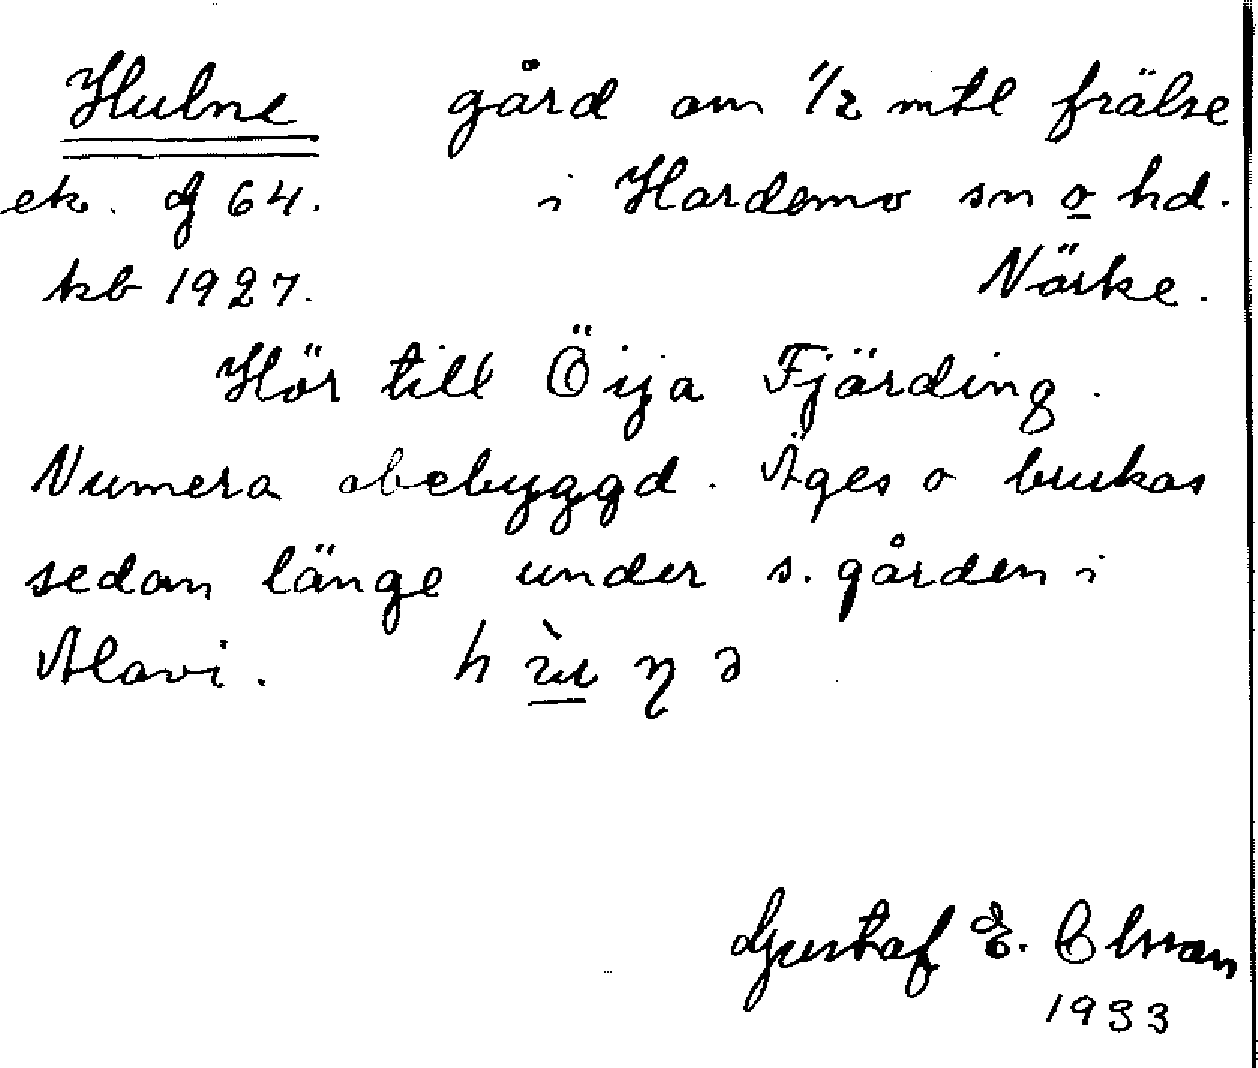 Hulne gård om 1/2 mtl frälse
ek. dg 64. i Hardemo sn o hd.
kb 1927. Närke.
Hör till Öija Fjärding.
Numera obebyggd. Äges o brukas
sedan länge under s. gården i
Alavi.
Gustaf E. Olsson
1933